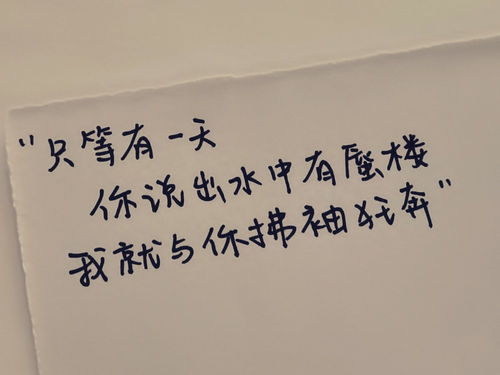 "只等有一天
你说出水中有蜃楼
我就与你拂袖狂奔"